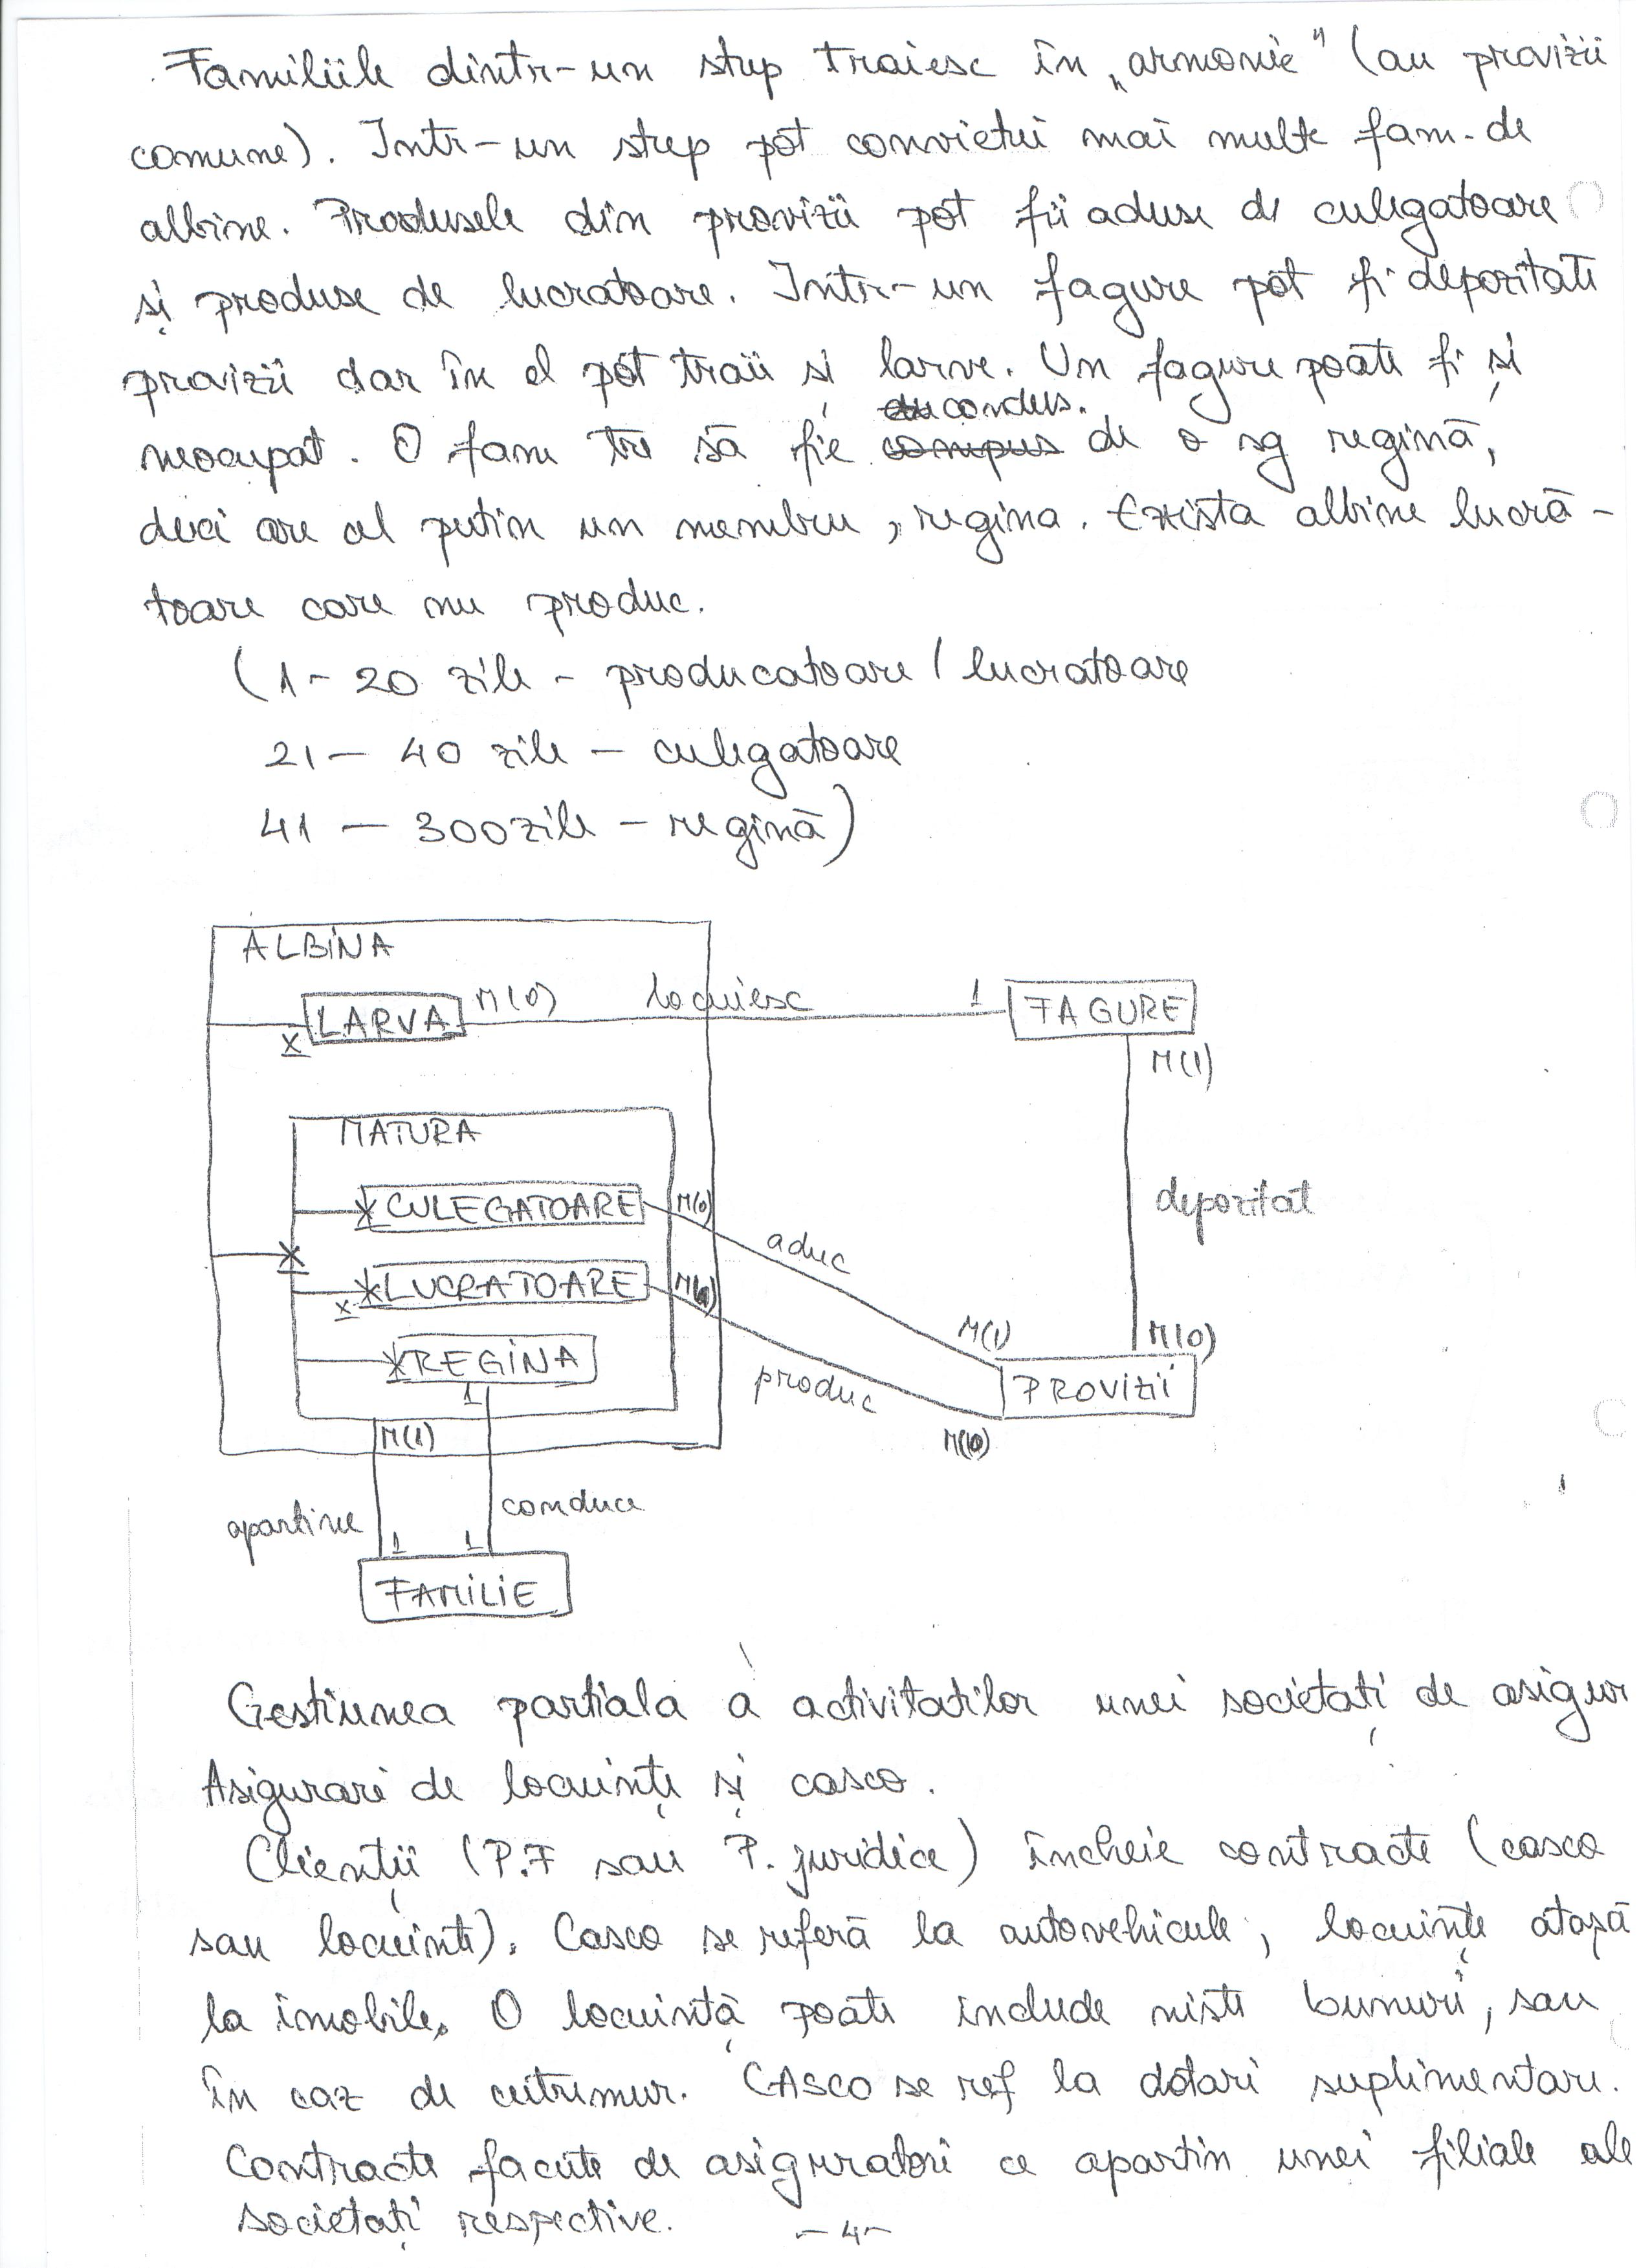 Familiile dintr-un stup traiesc în „armonie" (au provizii
comune). Intr-un stup pot convietui mai multe fam. de
albine. Produsele din provizii pot fii aduse de culegatoare
și produse de lucratoare. Intr-un fagure pot fi depozitate
provizii dar în el pot traii și larve. Un fagure poate fi și
condus.
neocupat. O fam tre să fie compus de o sg regină,
deci are cel putin un membru, regina. Exista albine lucră-
toare care nu produc.
(1-20 zile - producatoare / lucratoare
21 - 40 zile - culegatoare
41 - 300 zile - regină)
ALBINA
LARVA M(0) locuiesc 1 FAGURE
x
M(1)
MATURA
CULEGATOARE M(0)
depozitat
aduc
LUCRATOARE
x
M(1) M(0)
REGINA
1
produc
PROVIZII
M(1)
apartine
conduce
1 1
FAMILIE
Gestiunea partiala a activitatilor unei societați de asigur
Asigurari de locuințe și casco.
Cliențtii (P.F sau P. juridice) încheie contracte (casco
sau locuinte). Casco se referă la autovehicule, locuințe atașă
la imobile. O locuință poate include niste bunuri, sau
în caz de cutremur. CASCO se ref la dotari suplimentare.
Contracte facute de asiguratori ce apartin unei filiale ale
societați respective.
- 4 -